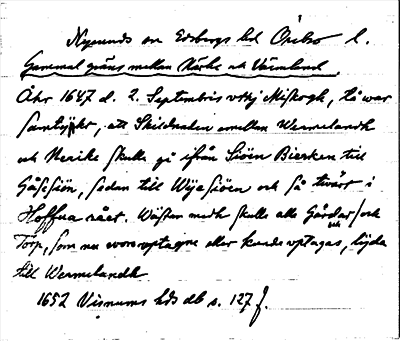 Nysunds sn Edsbergs hd Örebro l.
Gammal gräns mellan Närke och Värmland.
Åhr 1647 d. 2. Septembris vthj Miskogh, då war
samtyckt, att Skildnaden emellan Wermelandh
och Nerike skulle gå ifrån Siöön Bierken till
Gåsesiön, sedan till Wijesiöen och så twärt i
Hoffua rået. Wästan medh skulle alla Gårdar och
Torp, som nu woro vptagne eller kunde vptagas, lijda
till Wermelandh
1652 Visnums hds db s. 127 f.